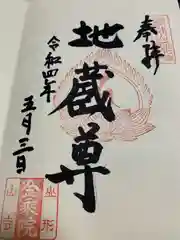 奉拝
地蔵尊
令和四年
五月三日